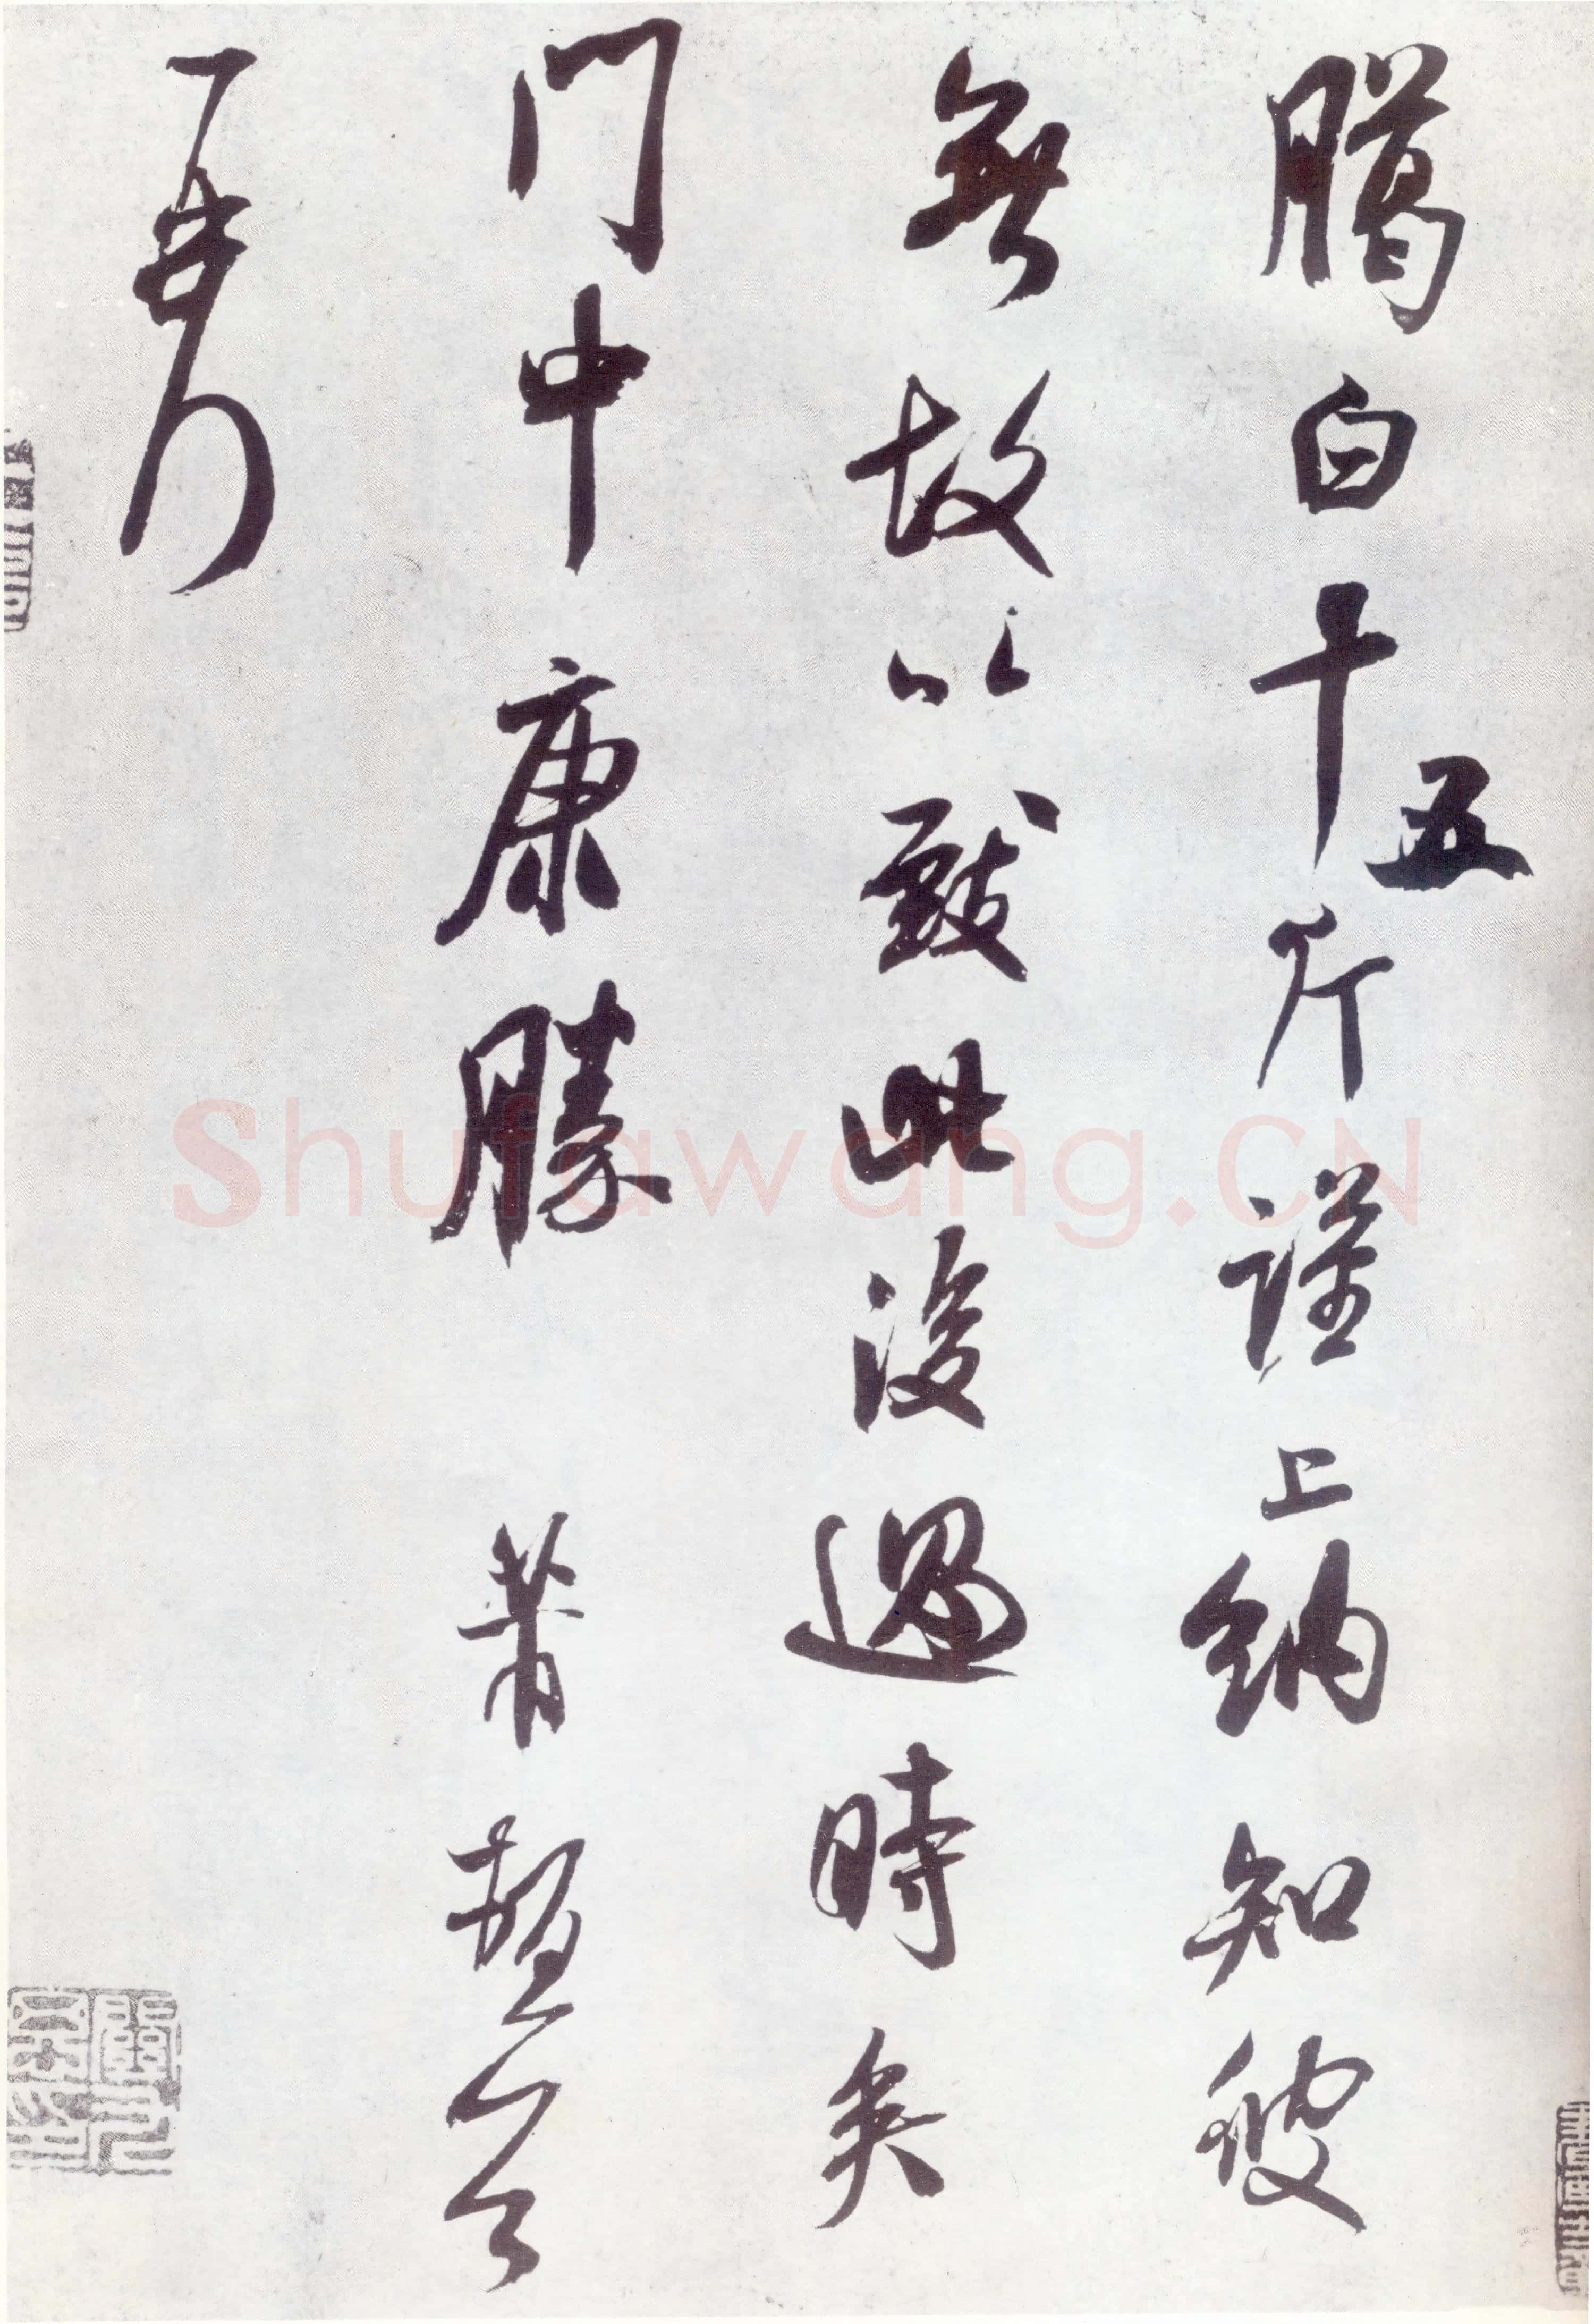 臈白十五斤謹上納知彼
無故以致此後過時矣
門中康勝
Shufawang.CN